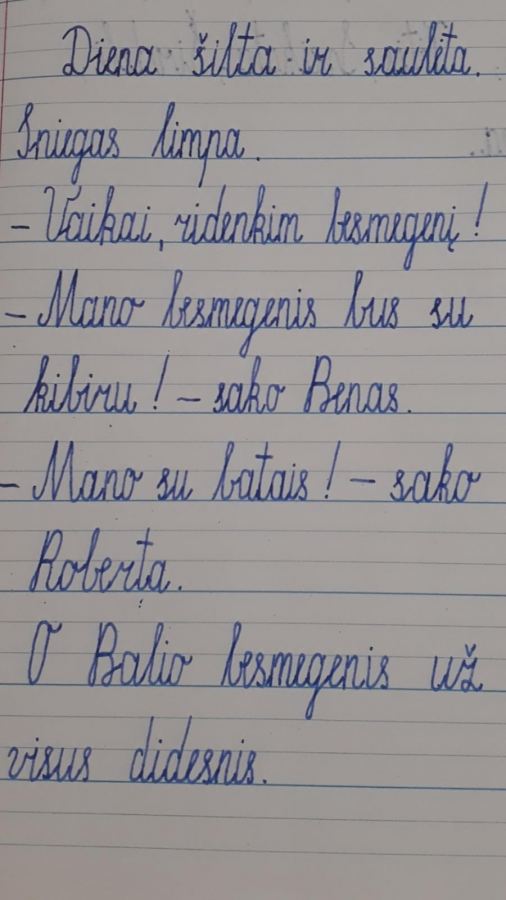 Diena šilta ir saulėta.
Sniegas limpa.
– Vaikai, ridenkim besmegenį!
– Mano besmegenis bus su
kibiru! – sako Benas.
– Mano su batais! – sako
Roberta.
O Balio besmegenis už
visus didesnis.